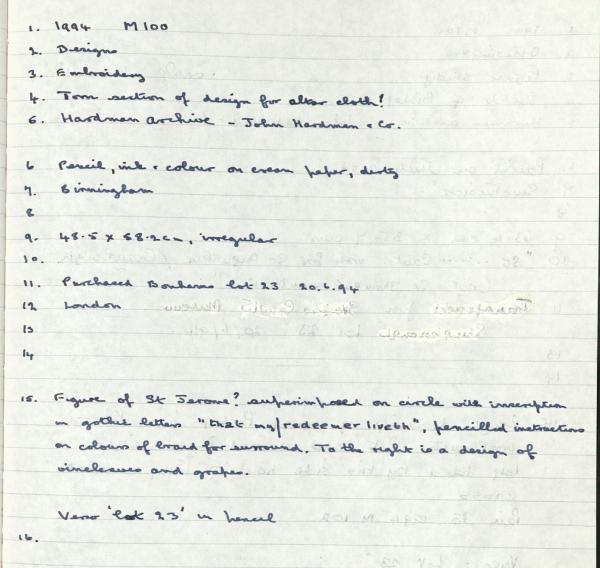 1. 1994 M100
2. Designs
3. Embroidery
4. Torn section of design for altar cloth?
5. Hardman Archive - John Hardman & Co.
6 Pencil, ink & colour on cream paper, dirty
7. Birmingham
8
9. 48.5 x 58.2cm, irregular
10.
11. Purchased Bonhams lot 23 20.6.94
12 London
13
14
15. Figure of St Jerome? superimposed on circle with inscription
in gothic letters "that my/redeemer liveth", pencilled instructions
on colours of braid for surround. To the right is a design of
vineleaves and grapes.
Verso 'lot 23' in pencil
16.